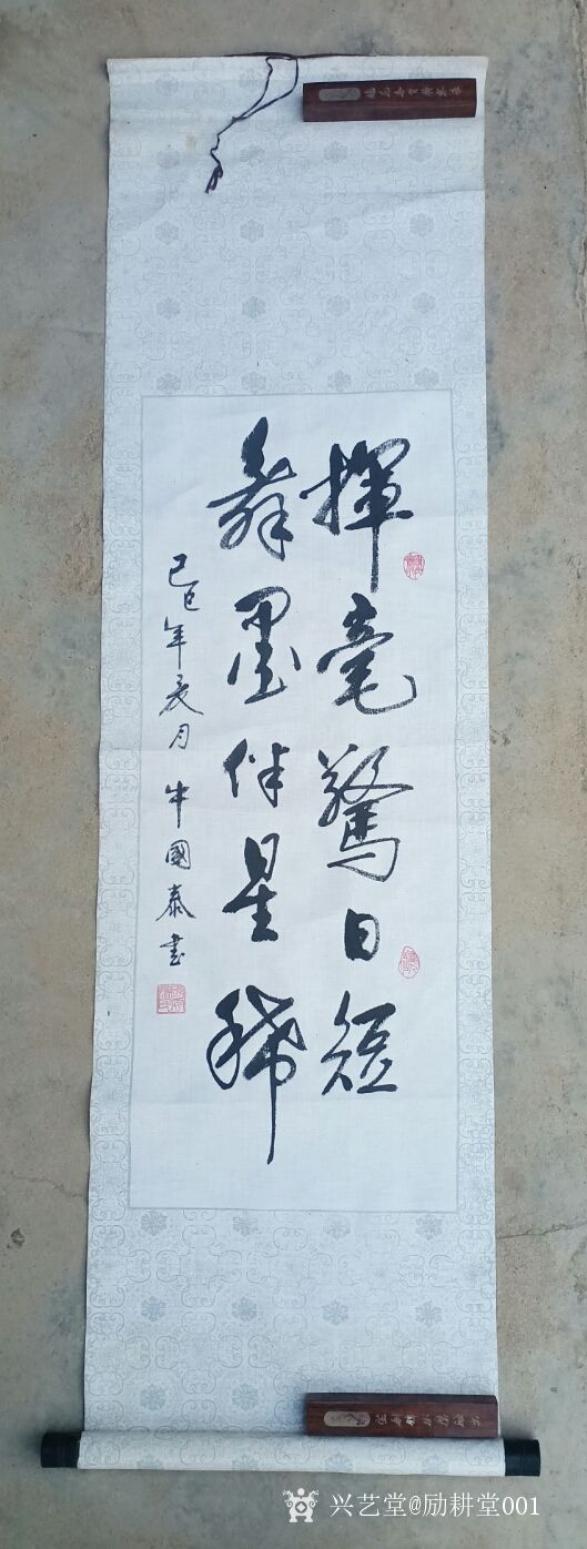 揮毫驚日短
舞墨伴星稀
己巳年夏月 牛國泰書
兴艺堂@励耕堂001